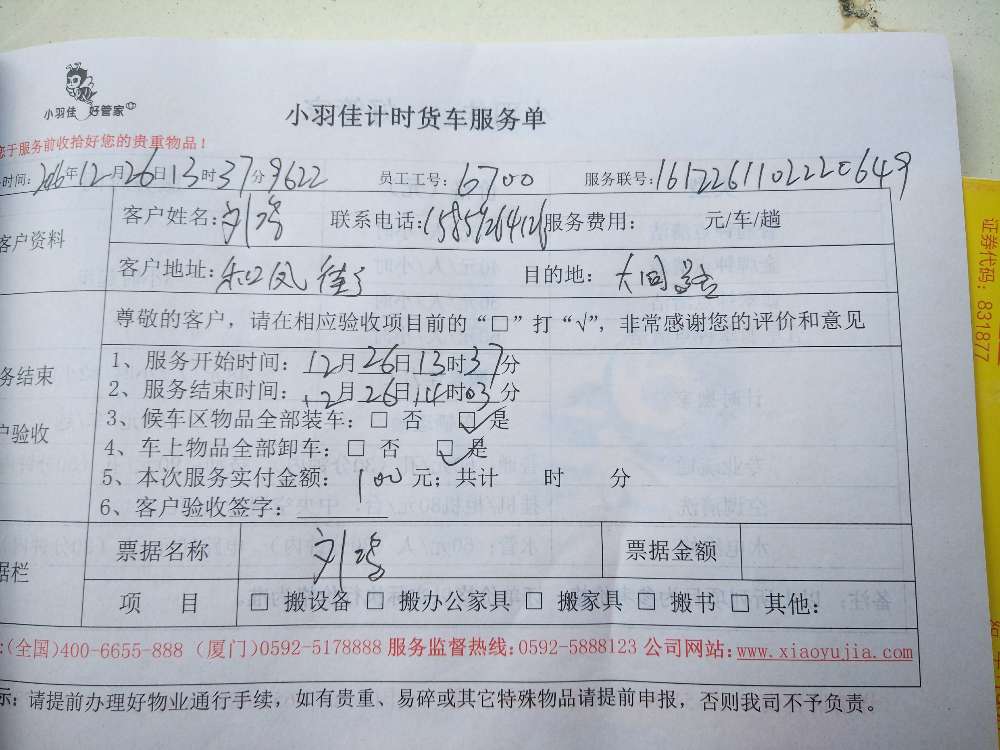 小羽佳 好管家
小羽佳计时货车服务单
您于服务前收拾好您的贵重物品！
时间：2016年12月26日13时37分9622 员工工号：6700 服务联号：1612261102220649
客户资料
客户姓名：刘 联系电话： 服务费用： 元/车/趟
客户地址： 目的地：
尊敬的客户，请在相应验收项目前的“□”打“√”，非常感谢您的评价和意见
务结束
户验收
1、服务开始时间：12月26日13时37分
2、服务结束时间：12月26日14时03分
3、候车区物品全部装车：□ 否 □ 是
4、车上物品全部卸车：□ 否 □ 是
5、本次服务实付金额：100元；共计 时 分
6、客户验收签字：
据栏
票据名称 刘 票据金额
项 目 □ 搬设备 □ 搬办公家具 □ 搬家具 □ 搬书 □ 其他：
:(全国)400-6655-888 (厦门)0592-5178888 服务监督热线:0592-5888123 公司网站:www.xiaoyujia.com
示：请提前办理好物业通行手续，如有贵重、易碎或其它特殊物品请提前申报，否则我司不予负责。
证券代码：831877